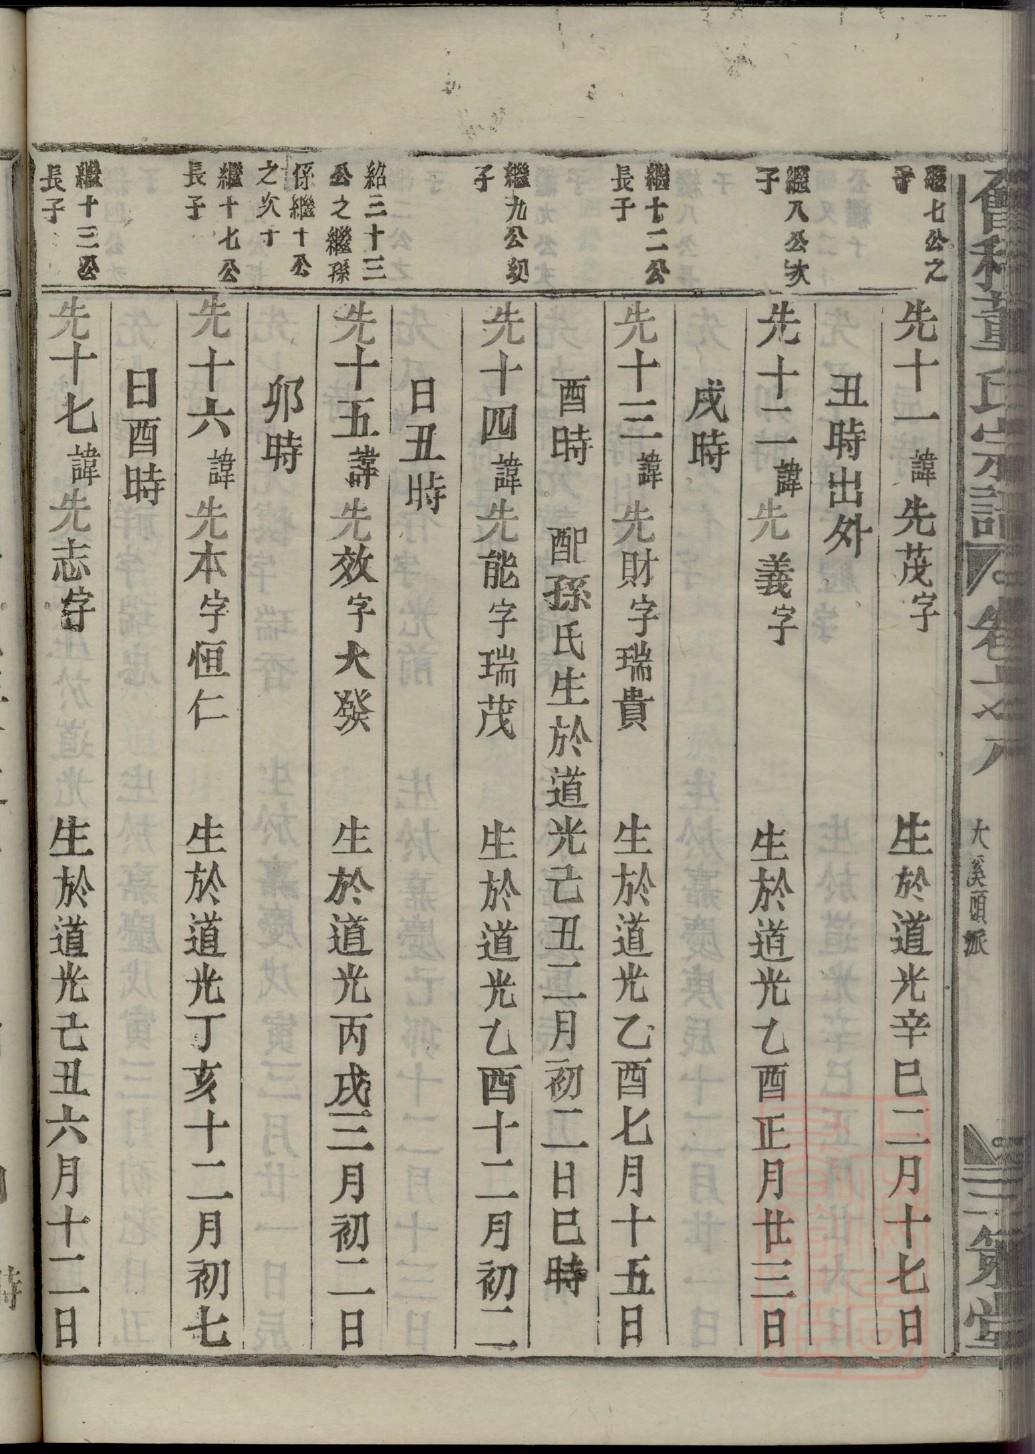 董氏宗譜
大溪頭派
三策堂
繼七公之子
先十一諱先茂字 生於道光辛巳二月十七日
丑時出外
繼八公次子
先十二諱先義字 生於道光乙酉正月廿三日
戌時
繼十二公長子
先十三諱先財字瑞貴 生於道光乙酉七月十五日
酉時 配孫氏生於道光己丑二月初二日巳時
繼九公初子
先十四諱先能字瑞茂 生於道光乙酉十二月初二
日丑時
紹三十三公之繼孫係繼十公之次子
先十五諱先效字大發 生於道光丙戌三月初二日
卯時
繼十七公長子
先十六諱先本字恒仁 生於道光丁亥十二月初七
日酉時
繼十三公長子
先十七諱先志字 生於道光己丑六月十二日